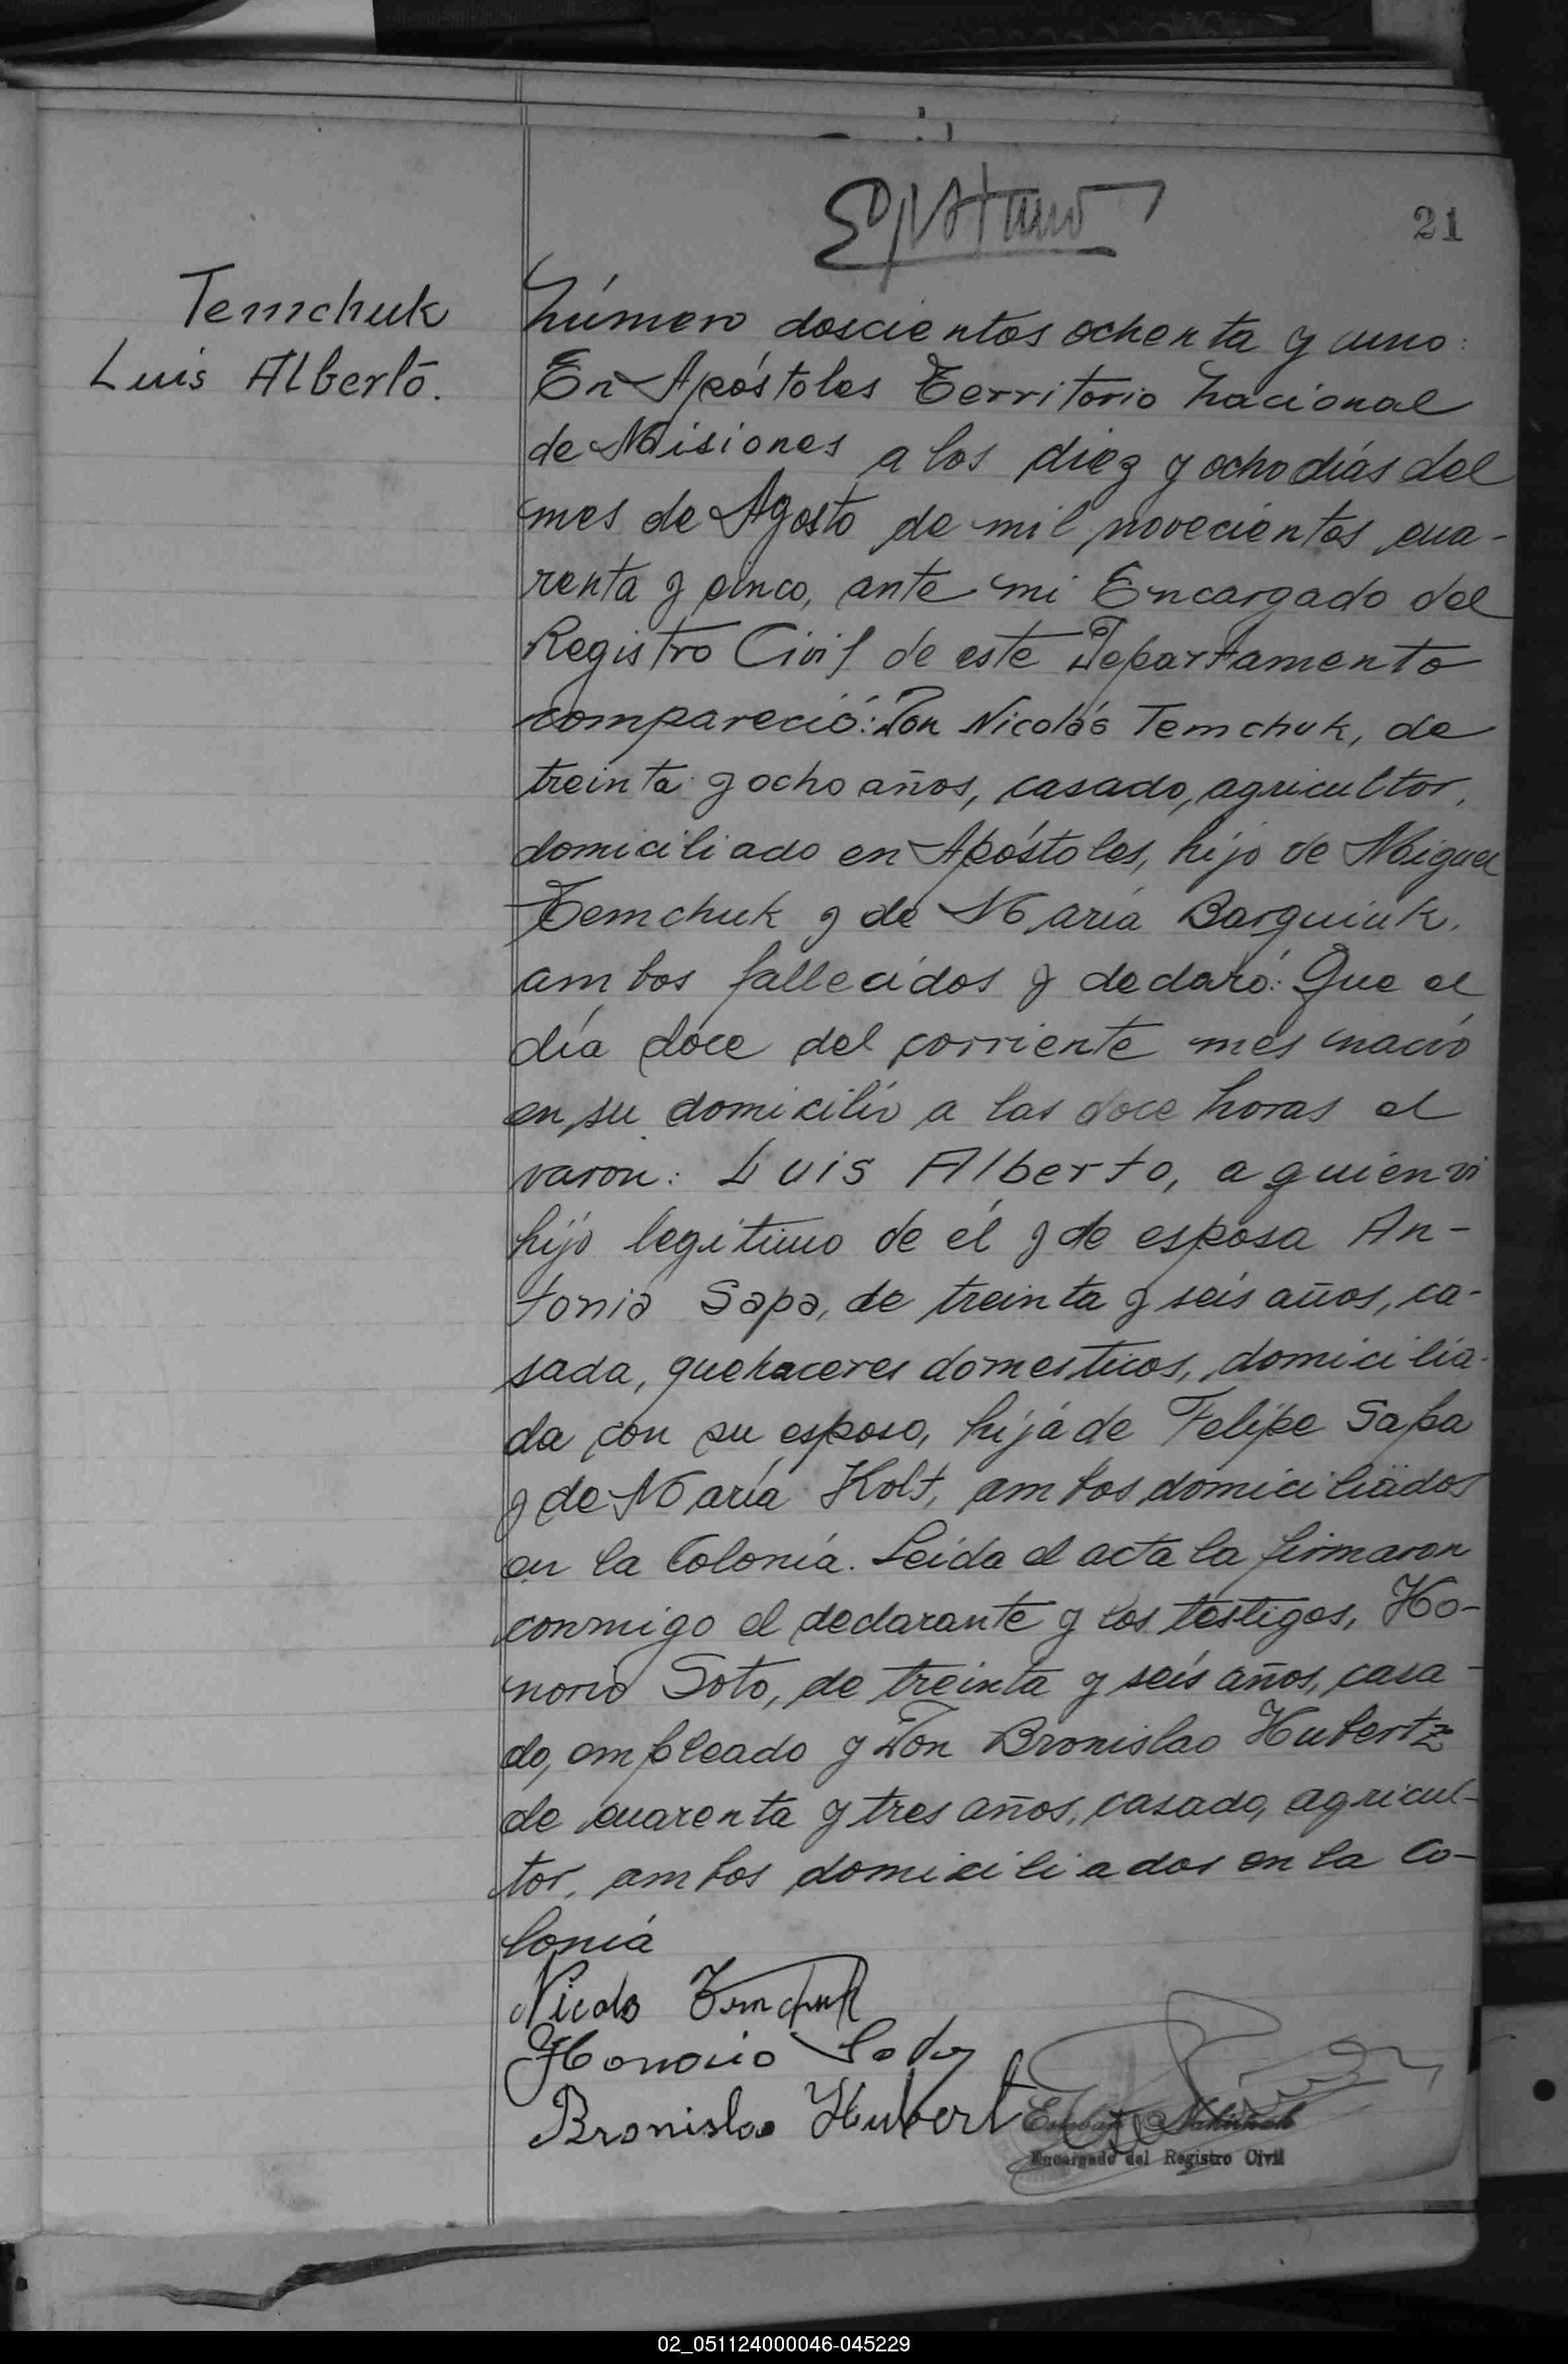 21
Temchuk
Luis Alberto.
Número doscientos ochenta y uno:
En Apóstoles Territorio Nacional
de Misiones a los diez y ocho días del
mes de Agosto de mil novecientos cua-
renta y cinco, ante mi Encargado del
Registro Civil de este Departamento
compareció: Don Nicolás Temchuk, de
treinta y ocho años, casado, agricultor,
domiciliado en Apóstoles, hijo de Miguel
Temchuk y de María Barquiuk,
ambos fallecidos y declaró: Que el
día doce del corriente mes nació
en su domicilio a las doce horas el
varon: Luis Alberto, a quien vi
hijo legitimo de él y de esposa An-
tonia Sapa, de treinta y seis años, ca-
sada, quehaceres domesticos, domicilia-
da con su esposo, hija de Felipe Sapa
y de María Kolt, ambos domiciliados
en la Colonia. Leida el acta la firmaron
conmigo el declarante y los testigos, Ho-
norio Soto, de treinta y seis años, casa-
do, empleado y Don Bronislao Hubertz
de cuarenta y tres años, casado, agricul-
tor, ambos domiciliados en la Co-
lonia
Nicolas Temchuk
Honorio Soto
Bronislao Hubert
Encargado del Registro Civil
02_051124000046-045229